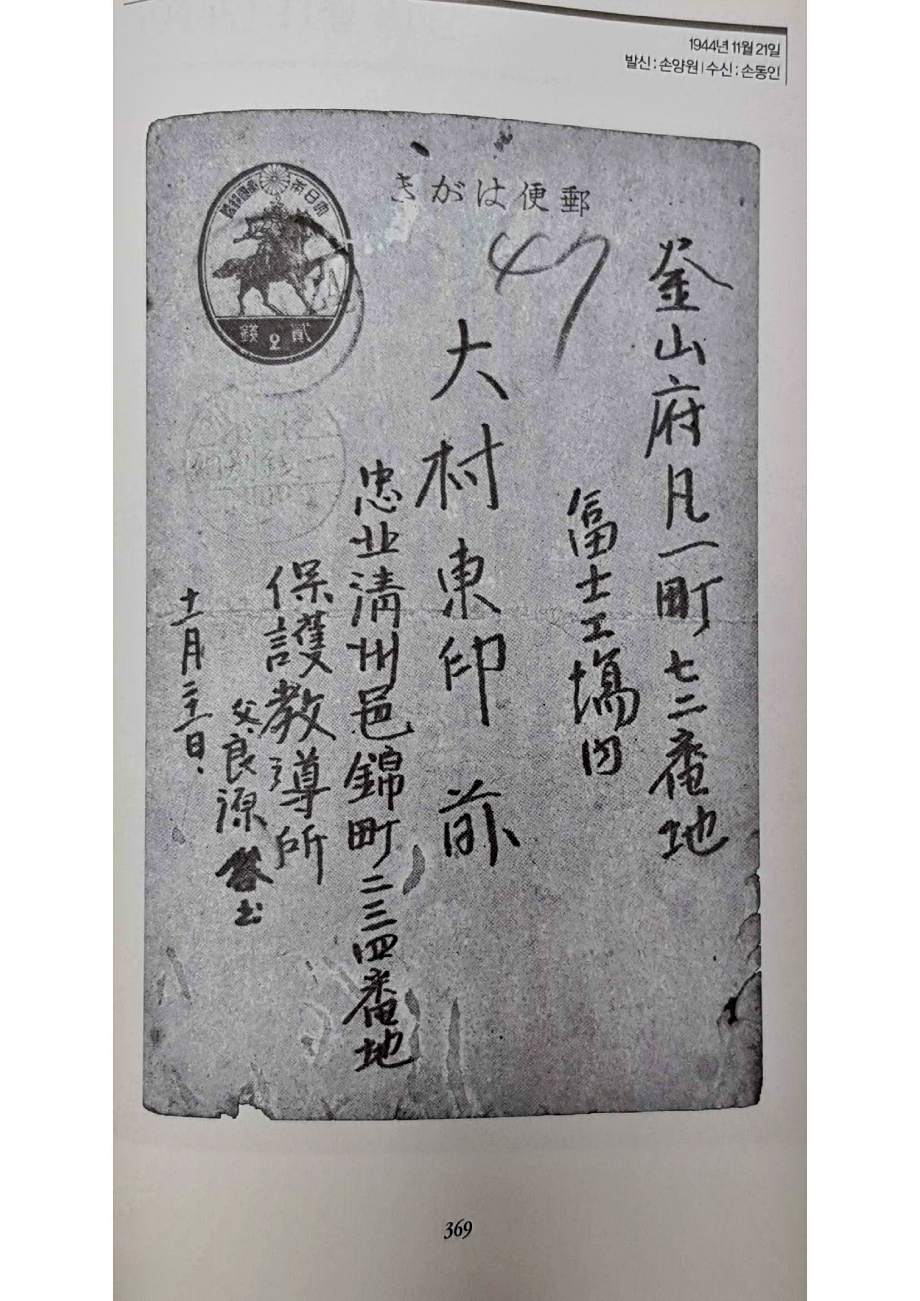 1944년 11월 21일
발신 : 손양원 | 수신 : 손동인
郵便はがき
大日本帝國郵便
貳2錢
47
釜山府凡一町七二番地
富士工場内
大村東印 前
忠北清州邑錦町二三四番地
保護教導所
父良源
十一月二十一日、
369